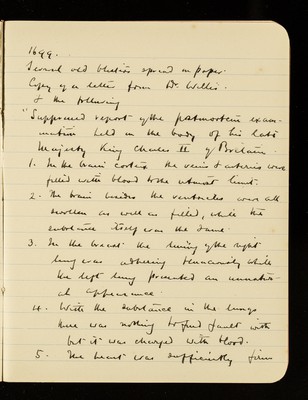 1699.
Several old bladders spread on paper.
Copy of a letter from Dr. Willis.
& the following
"Suppressed report of the postmortem exam-
ination held on the body of his late
Majesty King Charles II of Britain.
1. In the brain cortex the veins & arteries were
filled with blood to the utmost limit.
2. The brain besides the ventricles were all
swollen as well as filled, while the
substance itself was the same.
3. In the breast the lining of the right
lung was adhering tenaciously while
the left lung presented an
appearance.
4. With the substance in the lungs
there was nothing to find fault with
but it was charged with blood.
5. The heart was sufficiently firm